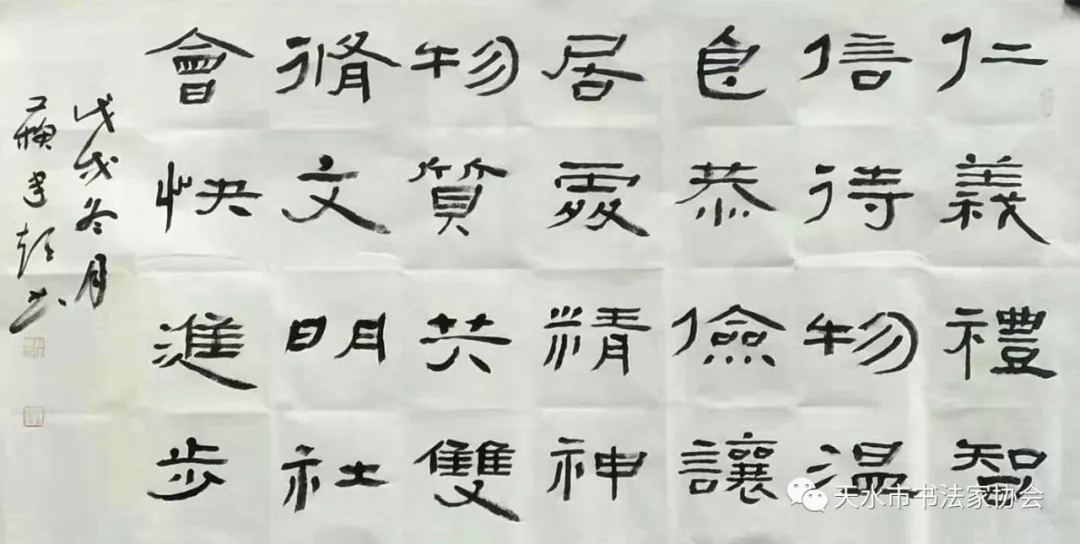 仁義禮智
信待物温
良恭儉讓
居處精神
物質共雙
脩文明社
會快進步
戊戌冬月
蘇书
天水市书法家协会